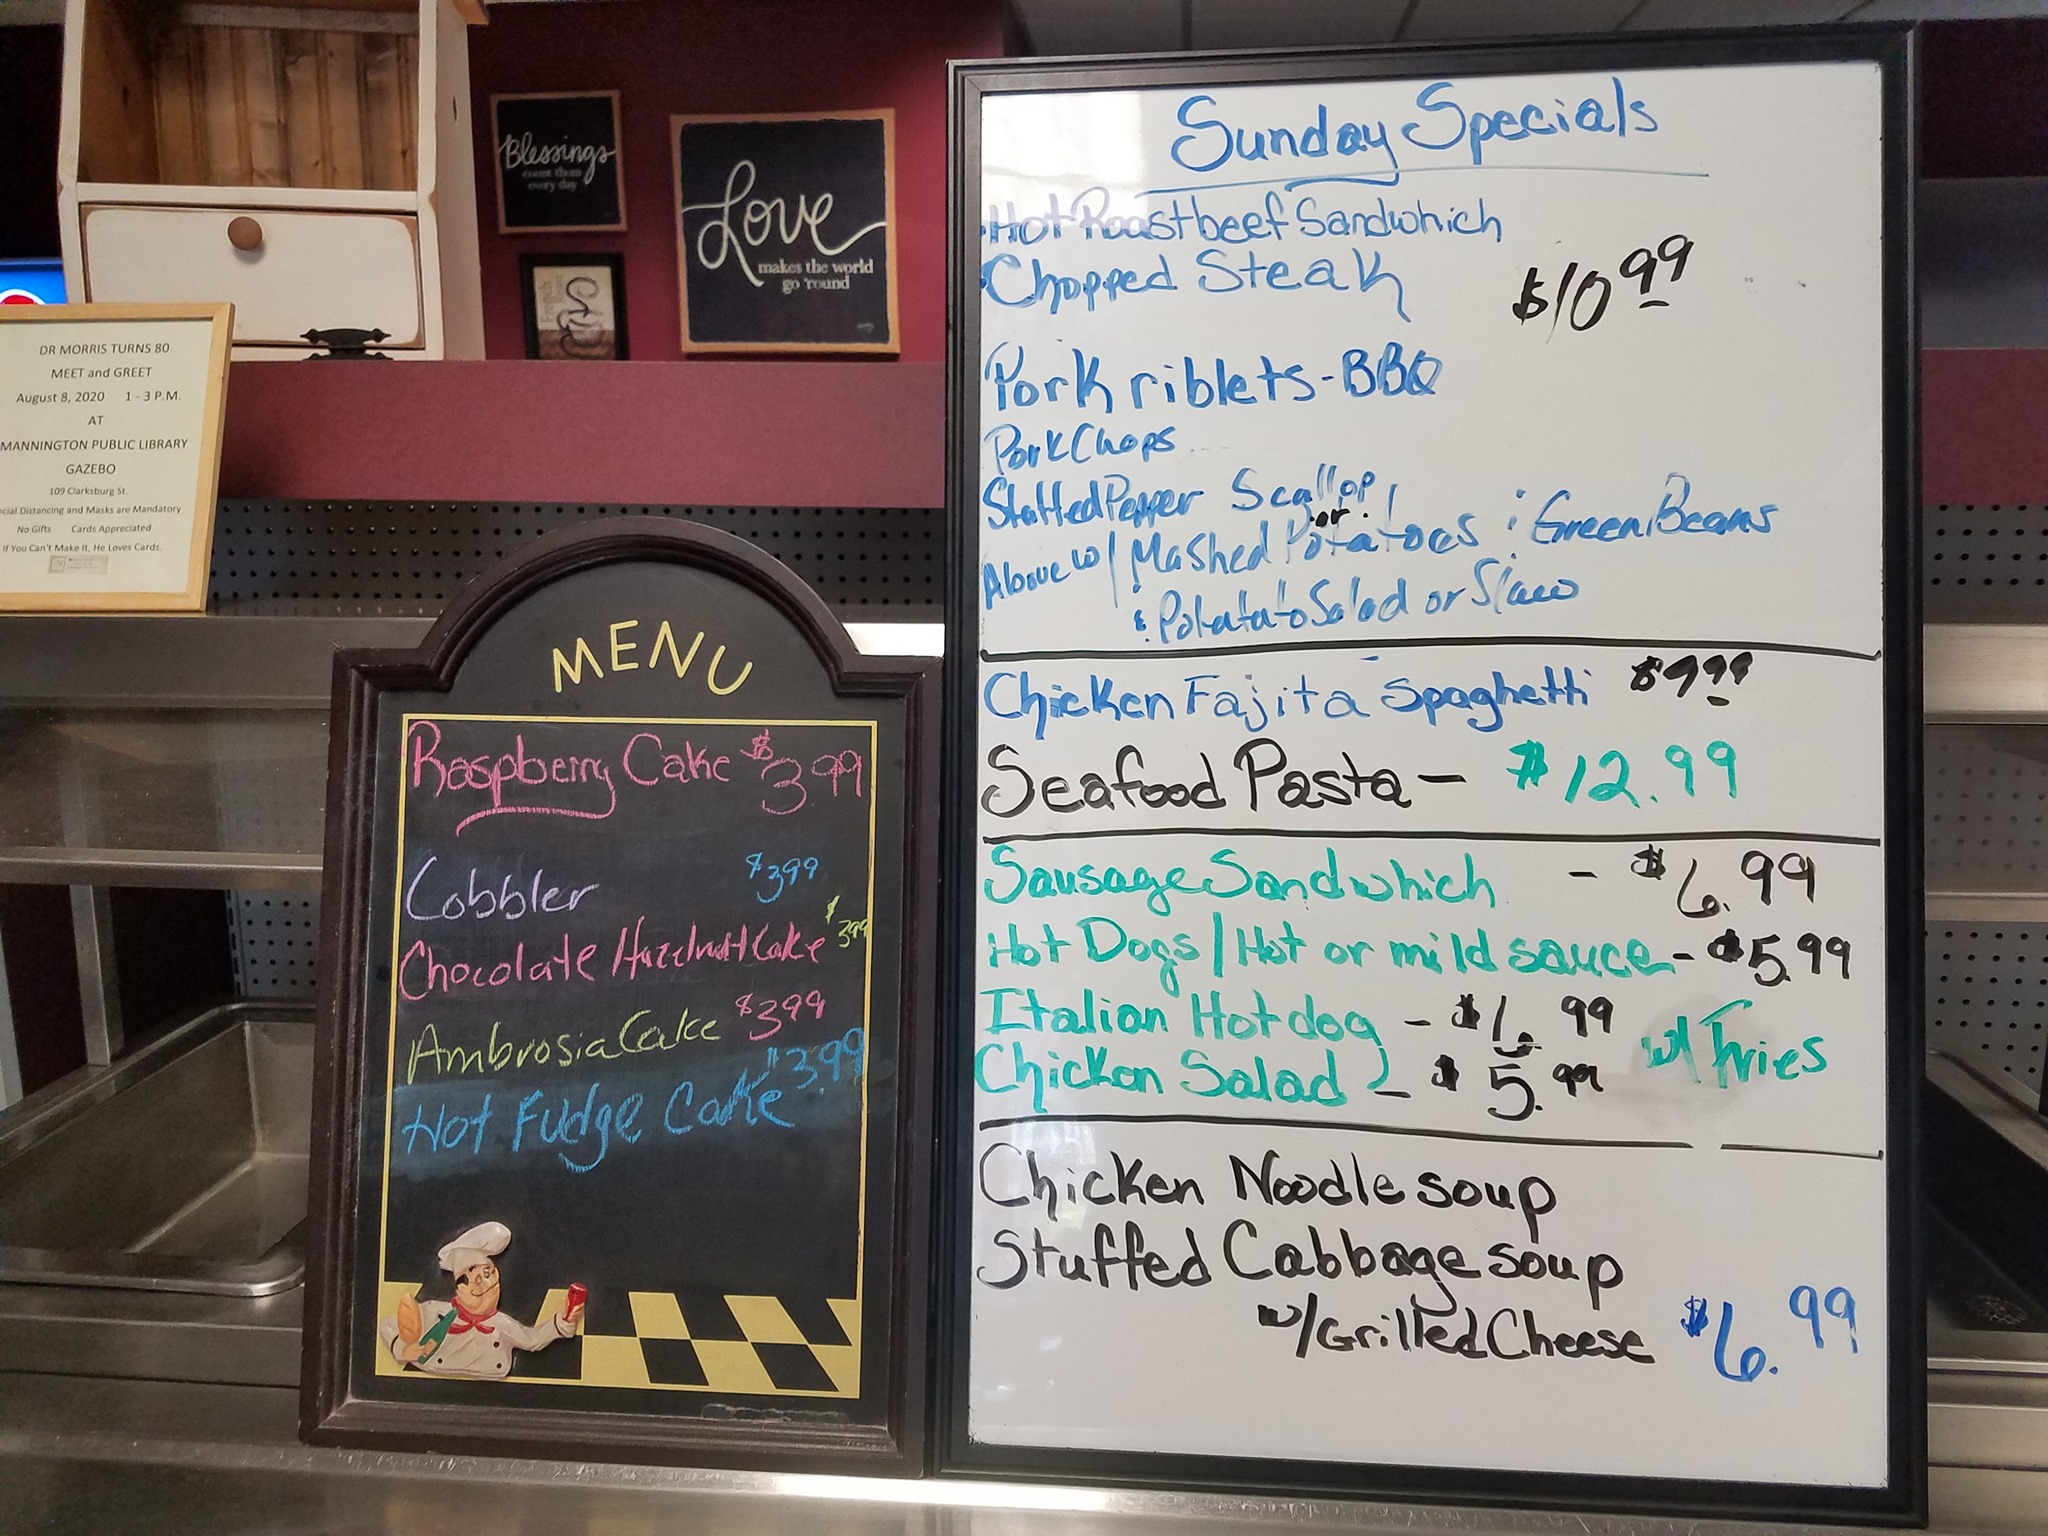 Blessings
count them
every day
Love
makes the world
go 'round
DR MORRIS TURNS 80
MEET and GREET
August 8, 2020 1 - 3 P.M.
AT
MANNINGTON PUBLIC LIBRARY
GAZEBO
109 Clarksburg St.
cial Distancing and Masks are Mandatory
No Gifts Cards Appreciated
If You Can't Make It, He Loves Cards.
MENU
Raspberry Cake $3.99
Cobbler $399
Chocolate Hazelnut Cake $399
Ambrosia Cake $399
Hot Fudge Cake $3.99
Sunday Specials
Hot Roastbeef Sandwhich
Chopped Steak $10 99
Pork riblets - BBQ
Pork Chops
Stuffed Pepper Scallop
or
Above w/ Mashed Potatoes Green Beans
& Potatato Salad or Slaw
Chicken Fajita Spaghetti $9 99
Seafood Pasta - $12.99
Sausage Sandwhich - $6.99
Hot Dogs / Hot or mild sauce - $5.99
Italian Hotdog - $6.99
Chicken Salad - $5.99 w/ Fries
Chicken Noodle soup
Stuffed Cabbage soup
w/ Grilled Cheese $6.99